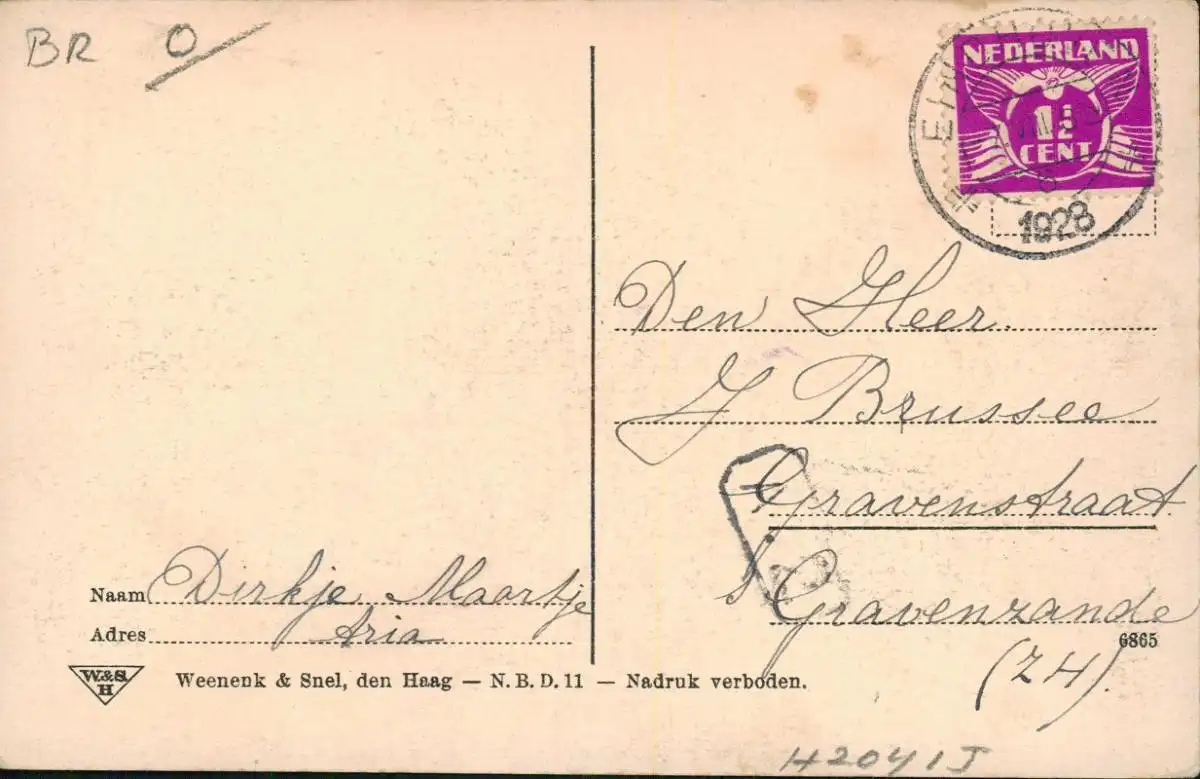 BR O
NEDERLAND
1½
CENT
1928
Den Heer.
J Brussee
Gravenstraat
s Gravenzande
(ZH).
Naam Dirkje Maartje
Adres Aria
6865
W&S
H
Weenenk & Snel, den Haag — N. B. D. 11 — Nadruk verboden.
H2041J